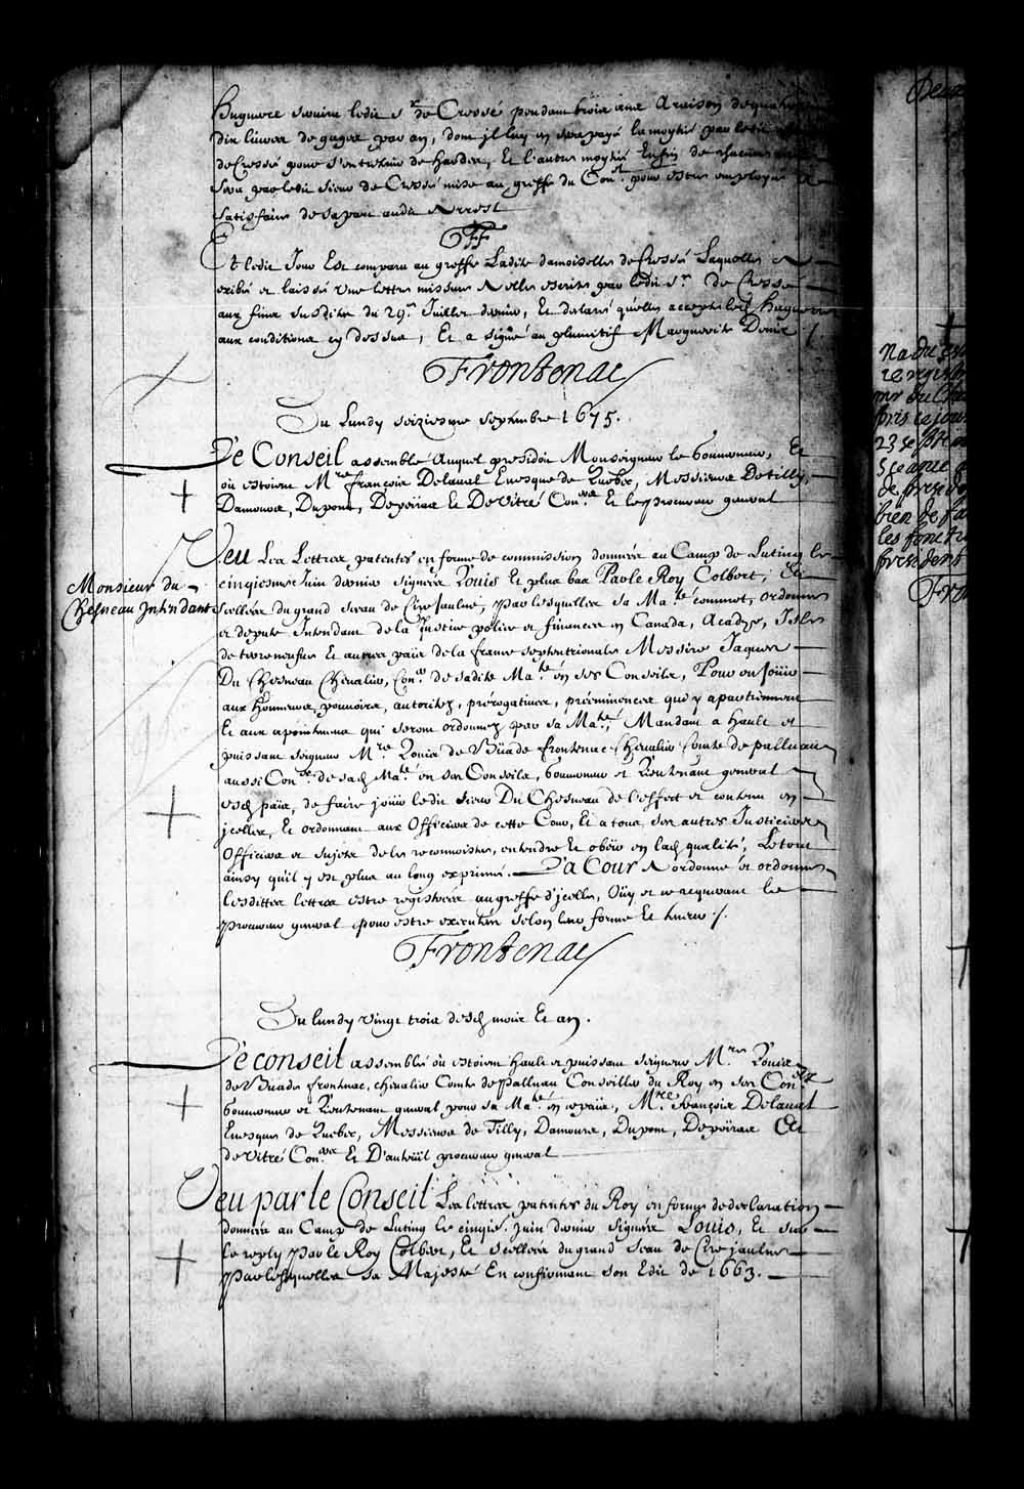 huguere servira ledit Sr de Cressé pendant trois ans a raison de quatre
dix livres de gages par an, dont il luy en sera payé la moytié par ledit
de Cressé pour s'entretenir de hardes, Et l'autre moytié Enfin de chacune
sera par ledit sieur de Cressé mise au greffe du Conl pour estre employée
satisfaire de sa part audit Arrest
Et ledit Jour Est comparu au greffe Ladite damoiselle de Cressé Laquelle a
exibé et laissé une lettre missive a elle escrite par ledit Sr de Cressé
aux fins susdites du 29e Juillet dernier, Et declaré qu'elle accepte led huguere
aux conditions cy dessus, Et a signé au plumitif Marguerite Denis /.
Frontenac
Du Lundy seiziesme septembre 1675.
Le Conseil assemblé Auquel presidoit Monseigneur le Gouverneur, Et
où estoient Mre françois Delaval Evesque de Quebec, Messieurs De tilly,
Damours, Dupont, Depeiras Et De Vitré Coners Et le procureur general
Veu Les Lettres patentes en forme de commission données au Camp de Luting le
cinqiesme Juin dernier signées Louis Et plus bas Par le Roy Colbert, Et
Scellées du grand sceau de Cire jaulne, par lesquelles sa Maté commet, ordonne
et depute Intendant de la Justice police et finances en Canada, Acadye, Isles
de terreneufve Et autres païs de la france septentrionale Messire Jaques
Du Chesneau Chevalier, Coner de sadite Maté en ses Conseils, Pour en Joüir
aux honneurs, pouvoirs, autoritez, prerogatives, prééminences qui y apartiennent
Et aux apointemens qui seront ordonnez par sa Maté, Mandant a Hault et
puissant seigneur Mre Louis de Büade frontenac Chevalier Comte de palluau
aussi Coner de sad Maté en ses Conseils, Gouverneur et Lieutenant general
esd païs, de faire joüir ledit sieur Du Chesneau de l'effect et contenu en
jcelles, Et ordonnant aux Officiers de cette Cour, Et a tous ses autres Justiciers
Officiers et sujets de les reconnoistre, entendre Et obeïr en lad qualité, Le tout
ainsy qu'il y est plus au long exprimé. La Cour A ordonné et ordonne
lesdittes lettres estre registrées au greffe d'jcelle, Oüy et ce requerant le
procureur general pour estre executées selon leur forme Et teneur /.
Monsieur du
Chesneau Intendant
Frontenac
Du lundy vingt trois desd mois Et an.
Le conseil assemblé où estoient hault et puissant seigneur Mre Louis
de Buade frontenac, chevalier Comte de Palluau Conseiller du Roy en ses Conls
Gouverneur et Lieutenant general pour sa Maté en ce païs, Mre françois Delaval
Evesque de Quebec, Messieurs de Tilly, Damours, Dupont, Depeiras Et
de Vitré Coners Et D'auteüil procureur general
Veu par le Conseil Les lettres patentes du Roy en forme de declaration
données au Camp de Luting le cinqe Juin dernier signées Louis, Et sur
le reply Par le Roy Colbert, Et scellées du grand sceau de Cire jaulne
Par lesquelles sa Majesté En confirmant son Edit de 1663.
23 se
bien de
Fro